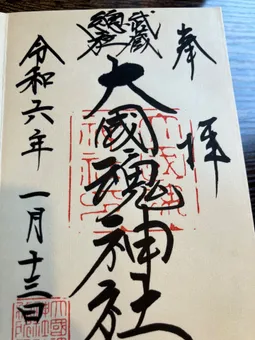 奉拝
武蔵
總社
大國魂神社
令和六年一月十三日